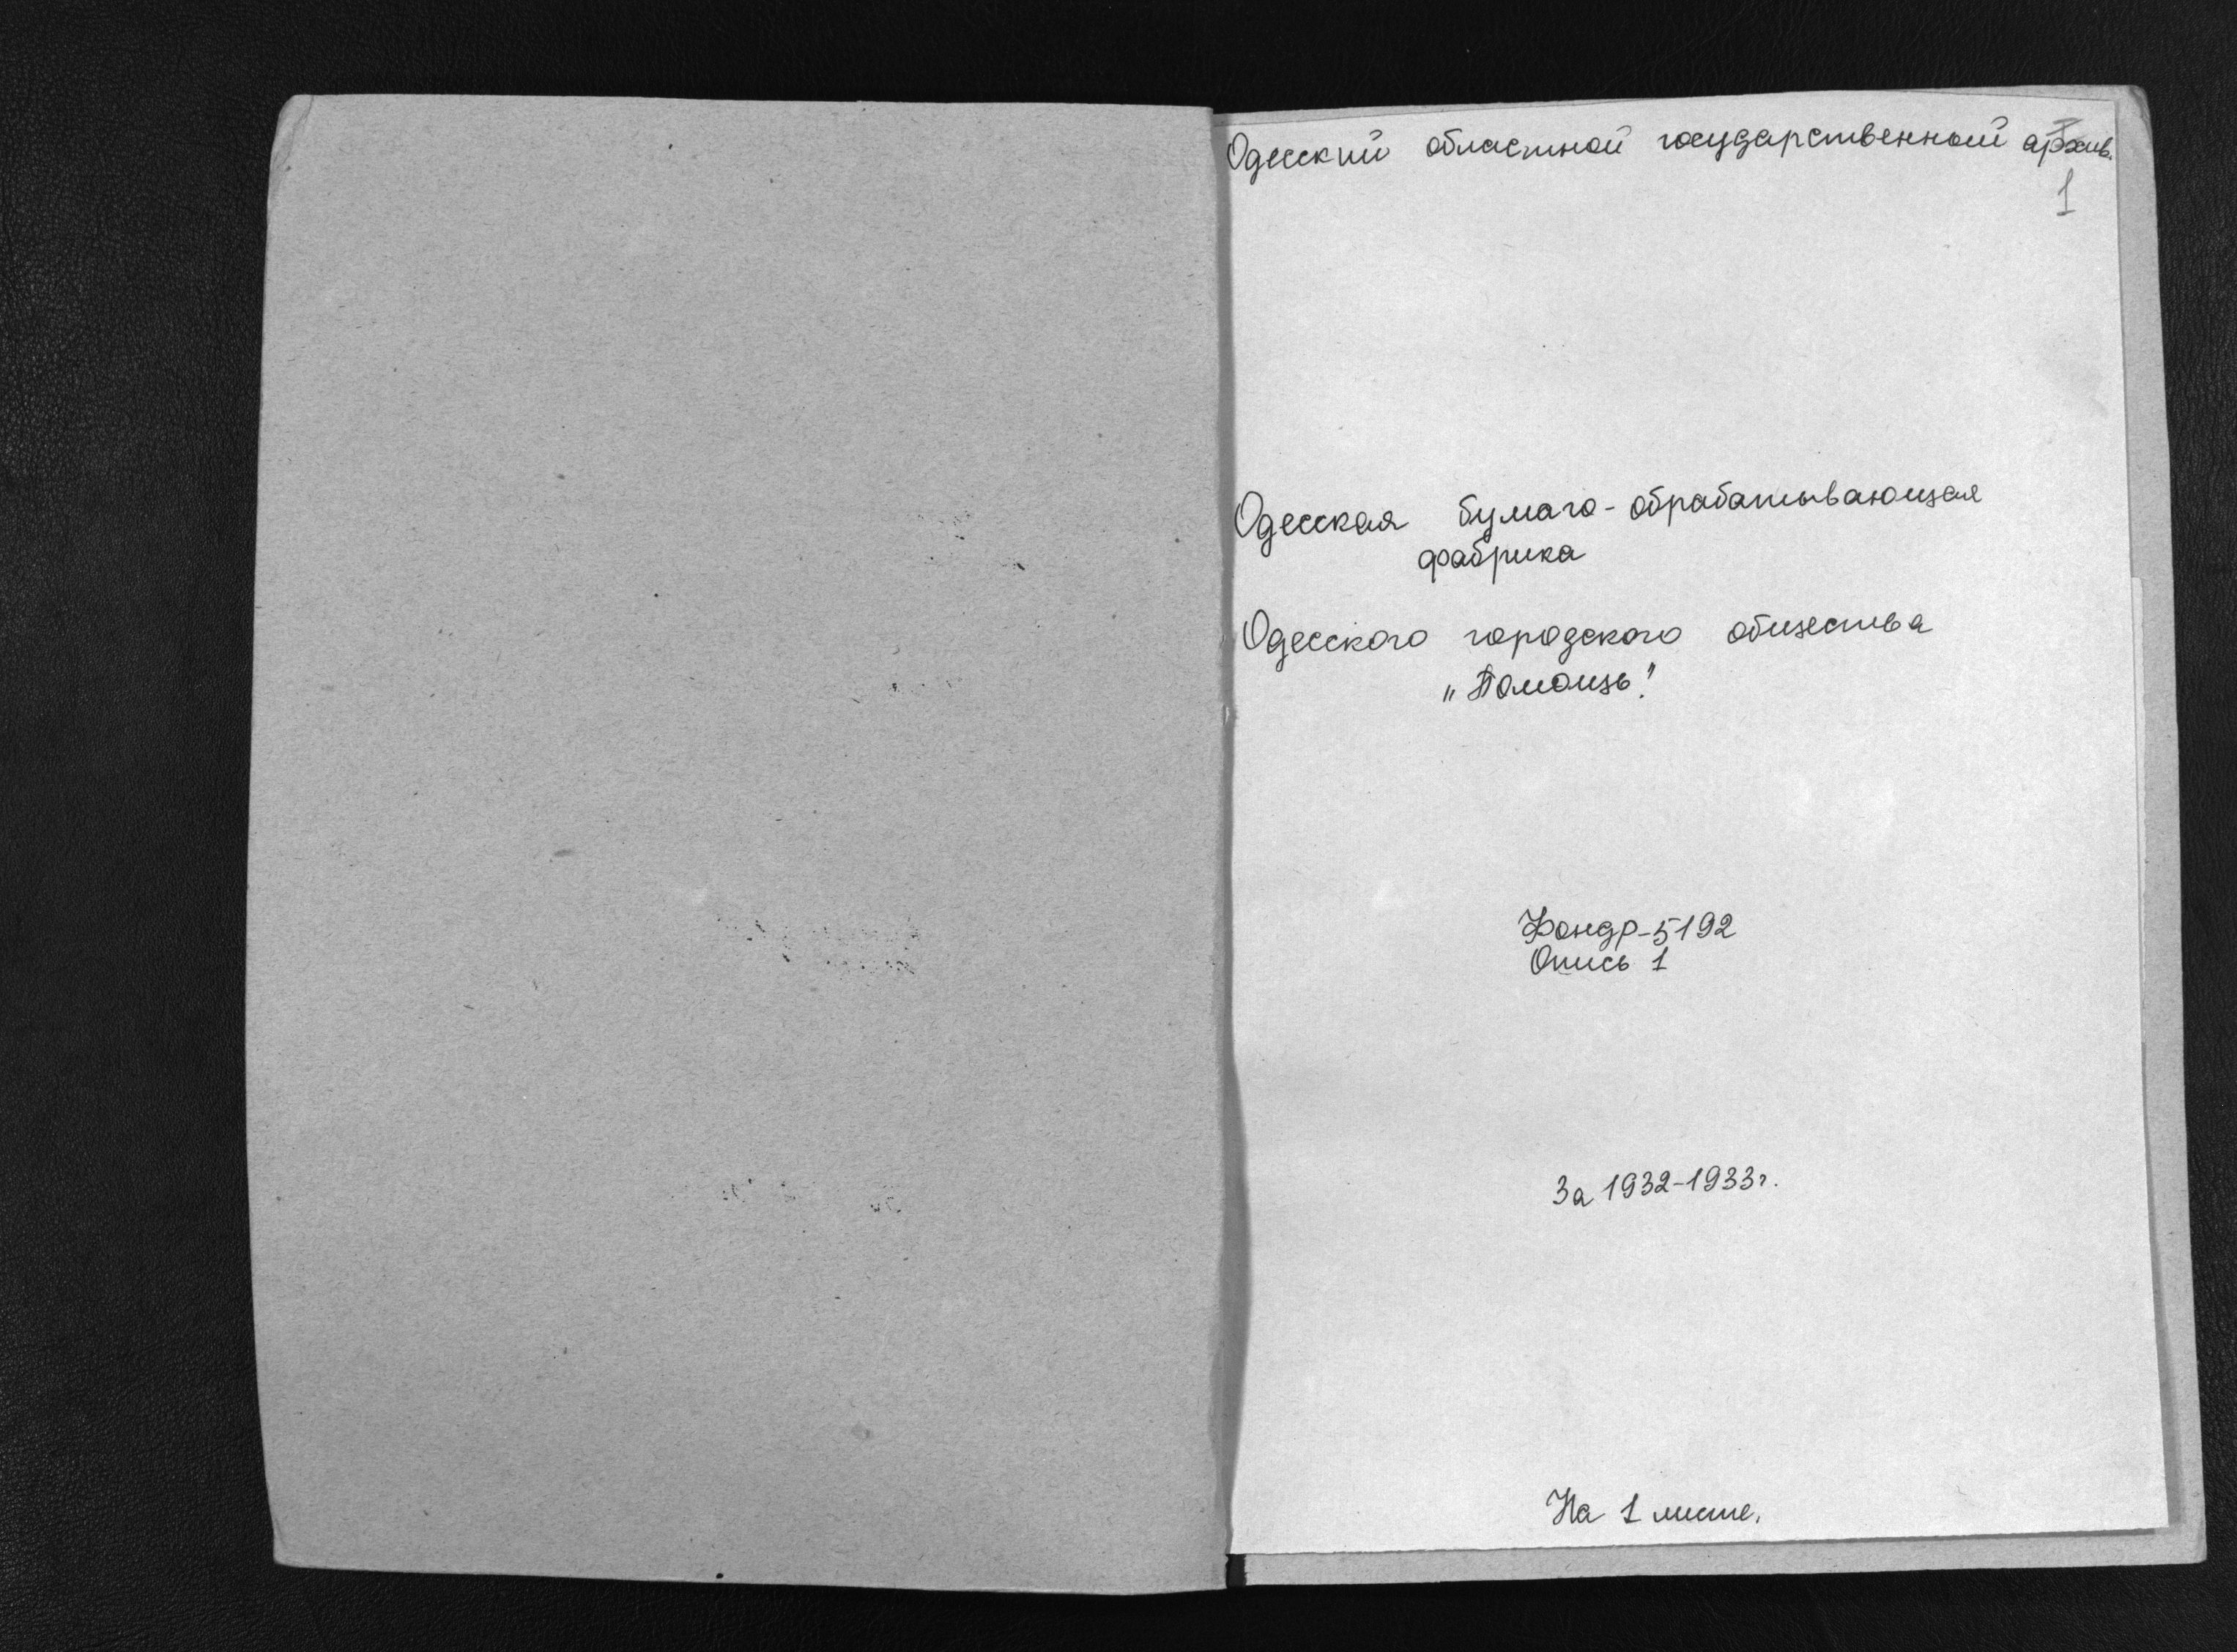 Одесский областной государственный архив.
1
Одесская бумаго-обрабатывающая
фабрика
Одесского городского общества
„Помощь".
Фонд Р-5192
Опись 1
За 1932-1933г.
На 1 листе.